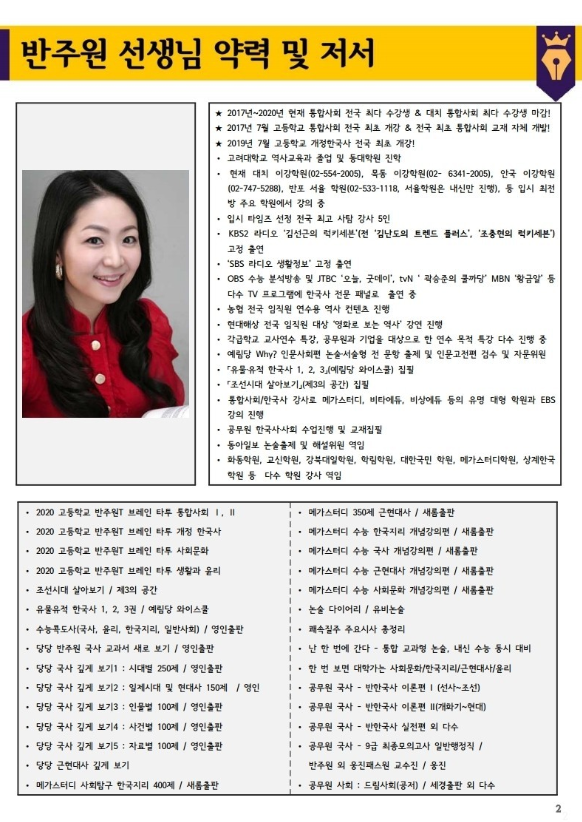 반주원 선생님 약력 및 저서
★ 2017년~2020년 현재 통합사회 전국 최다 수강생 & 대치 통합사회 최다 수강생 마감!
★ 2017년 7월 고등학교 통합사회 전국 최초 개강 & 전국 최초 통합사회 교재 자체 개발!
★ 2019년 7월 고등학교 개정한국사 전국 최초 개강!
• 고려대학교 역사교육과 졸업 및 동대학원 진학
• 현재 대치 이강학원(02-554-2005), 목동 이강학원(02- 6341-2005), 안국 이강학원
(02-747-5288), 반포 서울 학원(02-533-1118, 서울학원은 내신만 진행), 등 입시 최전
방 주요 학원에서 강의 중
• 입시 타임즈 선정 전국 최고 사탐 강사 5인
• KBS2 라디오 '김선근의 럭키세븐'(전 '김난도의 트렌드 플러스', '조충현의 럭키세븐')
고정 출연
• 'SBS 라디오 생활정보' 고정 출연
• OBS 수능 분석방송 및 JTBC '오늘, 굿데이', tvN ' 곽승준의 쿨까당' MBN '황금알' 등
다수 TV 프로그램에 한국사 전문 패널로 출연 중
• 농협 전국 임직원 연수용 역사 컨텐츠 진행
• 현대해상 전국 임직원 대상 '영화로 보는 역사' 강연 진행
• 각급학교 교사연수 특강, 공무원과 기업을 대상으로 한 연수 목적 특강 다수 진행 중
• 예림당 Why? 인문사회편 논술·서술형 전 문항 출제 및 인문고전편 검수 및 자문위원
• 「유물유적 한국사 1, 2, 3」(예림당 와이스쿨) 집필
• 「조선시대 살아보기」(제3의 공간) 집필
• 통합사회/한국사 강사로 메가스터디, 비타에듀, 비상에듀 등의 유명 대형 학원과 EBS
강의 진행
• 공무원 한국사사회 수업진행 및 교재집필
• 동아일보 논술출제 및 해설위원 역임
• 화동학원, 교신학원, 강북대일학원, 학림학원, 대한국민 학원, 메가스터디학원, 상계한국
학원 등 다수 학원 강사 역임
• 2020 고등학교 반주원T 브레인 타투 통합사회 Ⅰ, Ⅱ
• 2020 고등학교 반주원T 브레인 타투 개정 한국사
• 2020 고등학교 반주원T 브레인 타투 사회문화
• 2020 고등학교 반주원T 브레인 타투 생활과 윤리
• 조선시대 살아보기 / 제3의 공간
• 유물유적 한국사 1, 2, 3권 / 예림당 와이스쿨
• 수능콕도사(국사, 윤리, 한국지리, 일반사회) / 영인출판
• 당당 반주원 국사 교과서 새로 보기 / 영인출판
• 당당 국사 깊게 보기1 : 시대별 250제 / 영인출판
• 당당 국사 깊게 보기2 : 일제시대 및 현대사 150제 / 영인
• 당당 국사 깊게 보기3 : 인물별 100제 / 영인출판
• 당당 국사 깊게 보기4 : 사건별 100제 / 영인출판
• 당당 국사 깊게 보기5 : 자료별 100제 / 영인출판
• 당당 근현대사 깊게 보기
• 메가스터디 사회탐구 한국지리 400제 / 새롬출판
• 메가스터디 350제 근현대사 / 새롬출판
• 메가스터디 수능 한국지리 개념강의편 / 새롬출판
• 메가스터디 수능 국사 개념강의편 / 새롬출판
• 메가스터디 수능 근현대사 개념강의편 / 새롬출판
• 메가스터디 수능 사회문화 개념강의편 / 새롬출판
• 논술 다이어리 / 유비논술
• 쾌속질주 주요시사 총정리
• 난 한 번에 간다 - 통합 교과형 논술, 내신 수능 동시 대비
• 한 번 보면 대학가는 사회문화/한국지리/근현대사/윤리
• 공무원 국사 - 반한국사 이론편Ⅰ(선사~조선)
• 공무원 국사 - 반한국사 이론편Ⅱ(개화기~현대)
• 공무원 국사 - 반한국사 실전편 외 다수
• 공무원 국사 - 9급 최종모의고사 일반행정직 /
반주원 외 웅진패스원 교수진 / 웅진
• 공무원 사회 : 드림사회(공저) / 세경출판 외 다수
2